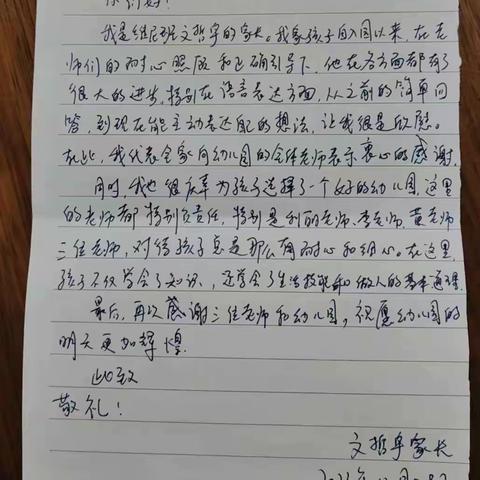 你们好!
我是维尼班文哲宇的家长。我家孩子自入园以来,在老
师们的耐心照顾和正确引导下,他在各方面都有了
很大的进步,特别在语言表达方面,从之前的简单问
答,到现在能主动表达自己的想法,让我很是欣慰。
在此,我代表全家向幼儿园的全体老师表示衷心的感谢。
同时,我也很庆幸为孩子选择了一个好的幼儿园,这里
的老师都特别负责任,特别是利的老师、李老师、黄老师
三位老师,对待孩子总是那么有耐心和细心。在这里,
孩子不仅学会了知识、还学会了生活技能和做人的基本道理.
最后,再次感谢三位老师和幼儿园,祝愿幼儿园的
明天更加辉煌.
此致
敬礼!
文哲宇家长